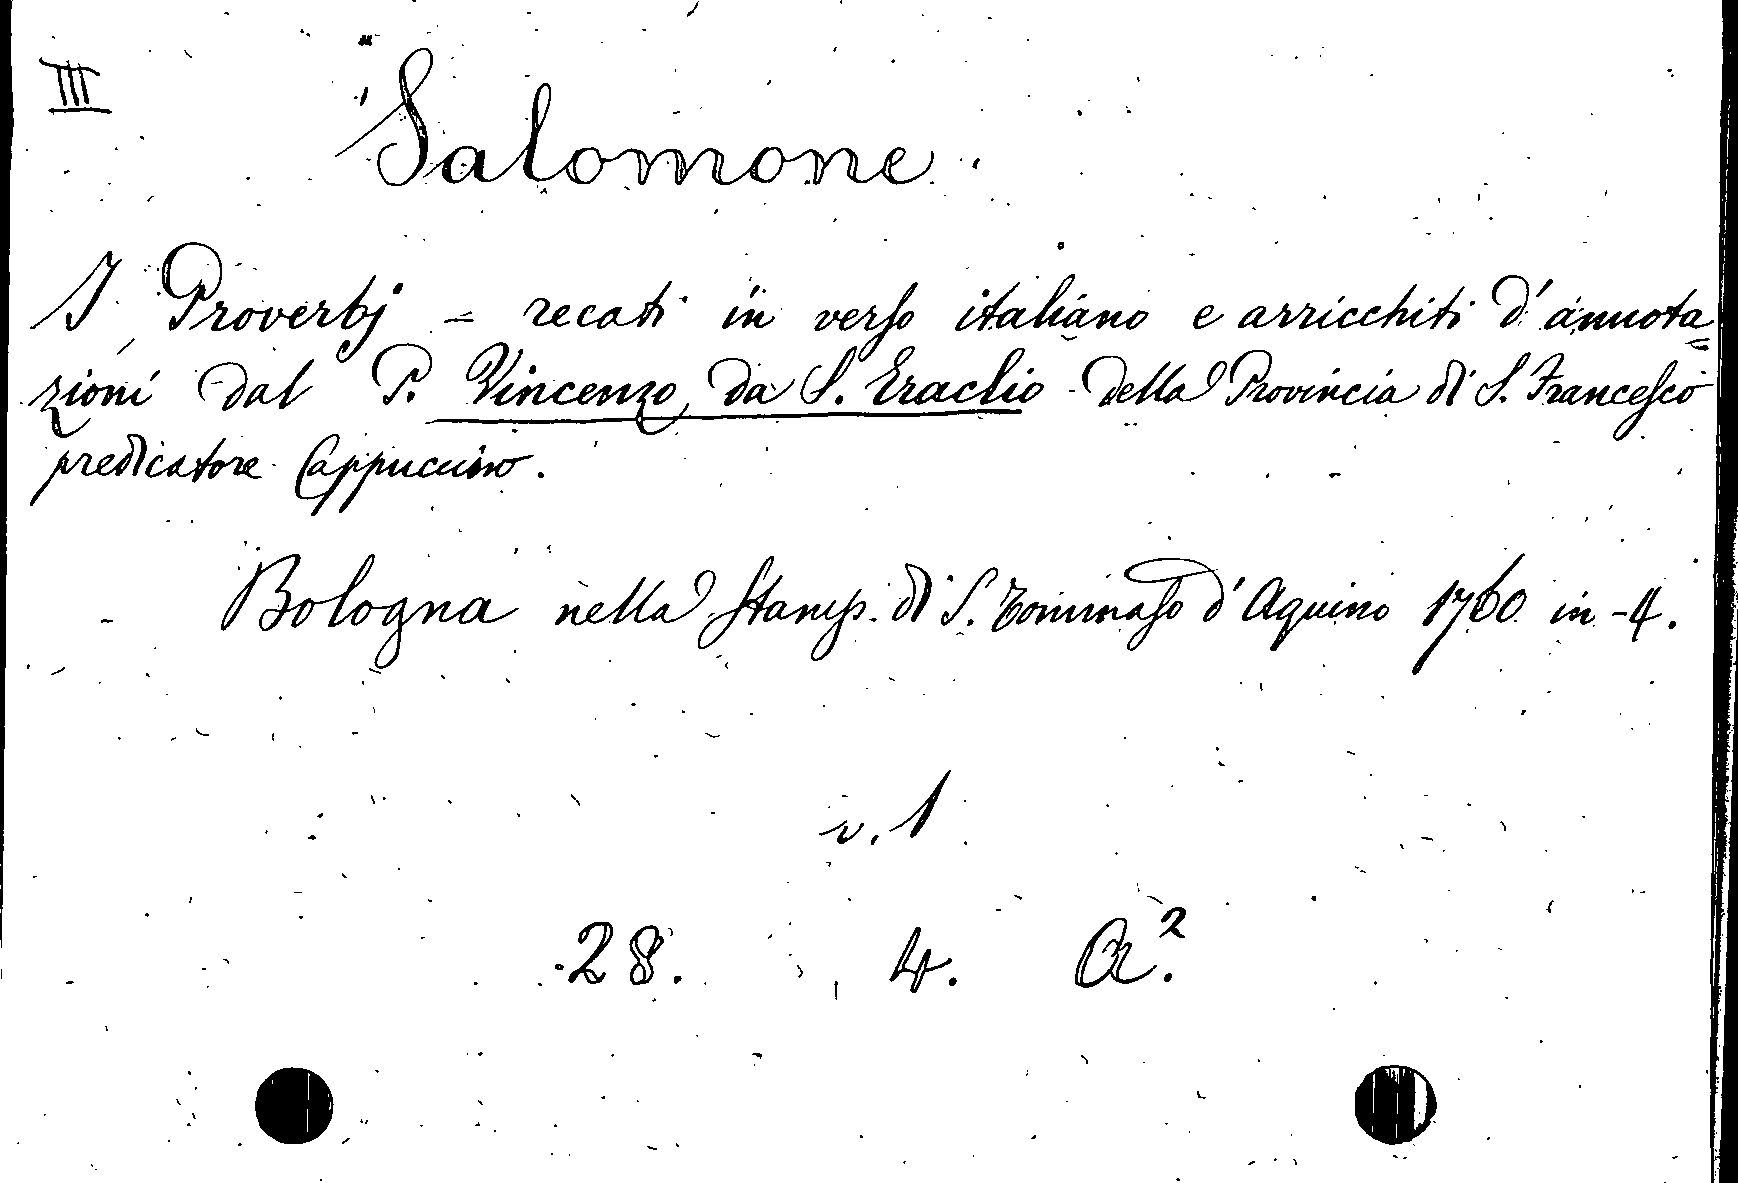 III
Salomone
I Proverbj = recati in verso italiano e arricchiti d'annota=
zioni dal P. Vincenzo da S. Eraclio della Provincia di S. Francesco
predicatore Cappuccino.
Bologna nella Stamp. di S. Tommaso d'Aquino 1760 in-4.
v. 1
28. 4. A².